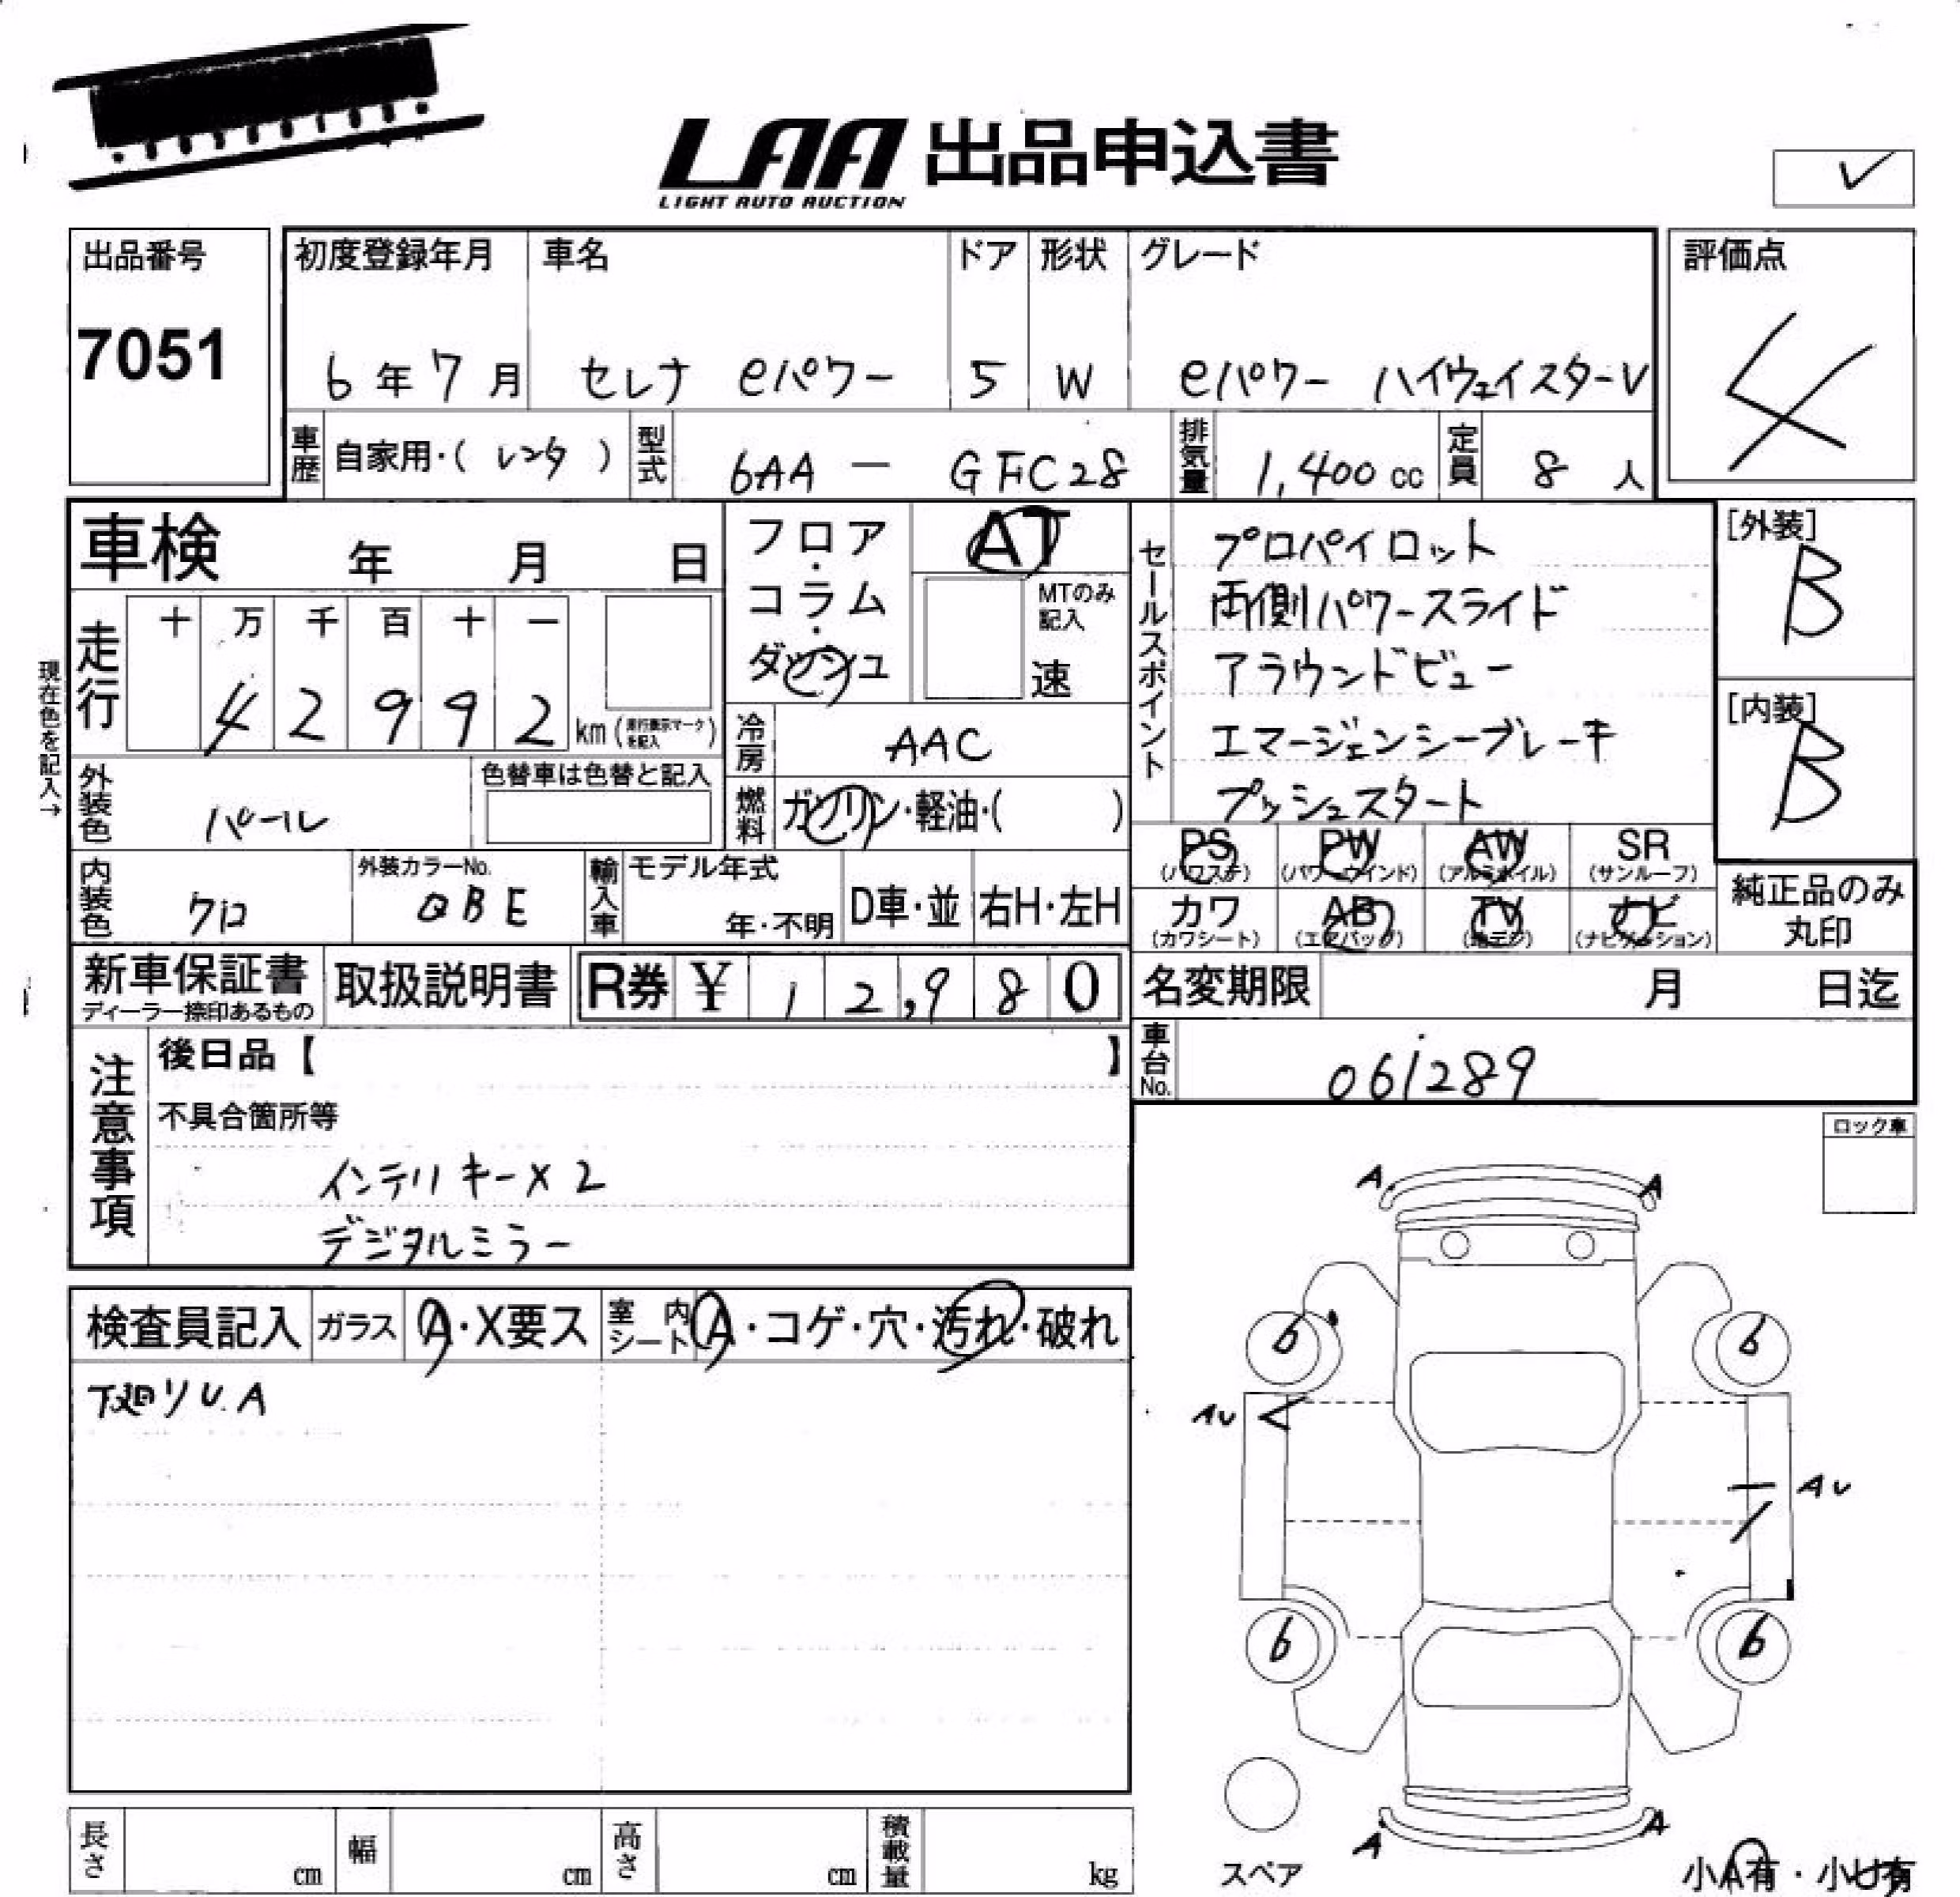 LAA 出品申込書
LIGHT AUTO AUCTION
✓
出品番号
7051
初度登録年月 車名 ドア 形状 グレード
6年7月 セレナ eパワー 5 W eパワー ハイウェイスターV
評価点
4
車歴 自家用・(レンタ) 型式 6AA - GFC28 排気量 1,400cc 定員 8人
車検 年 月 日
フロア・コラム・ダッシュ
AT
MTのみ記入
速
セールスポイント
プロパイロット
両側パワースライド
アラウンドビュー
エマージェンシーブレーキ
プッシュスタート
[外装]
B
[内装]
B
現在色を記入→
走行 十 万 千 百 十 一
4 2 9 9 2 km(走行表示マークを記入)
冷房 AAC
外装色 パール
色替車は色替と記入
燃料 ガソリン・軽油・( )
内装色 クロ
外装カラーNo.
QBE
輸入車 モデル年式
年・不明 D車・並 右H・左H
PS (パワステ) PW (パワーウインド) AW (アルミホイル) SR (サンルーフ)
カワ (カワシート) AB (エアバッグ) TV (地デジ) ナビ (ナビゲーション)
純正品のみ丸印
新車保証書
ディーラー捺印あるもの
取扱説明書
R券 ¥ 12,980
名変期限 月 日迄
車台No. 061289
注意事項
後日品【 】
不具合箇所等
インテリキー×2
デジタルミラー
ロック車
検査員記入 ガラス A・X要ス 室内シート A・コゲ・穴・汚れ・破れ
下廻りU.A
A A
6 6
AU
AU
6 6
A A
スペア
小A有・小U有
長さ cm 幅 cm 高さ cm 積載量 kg